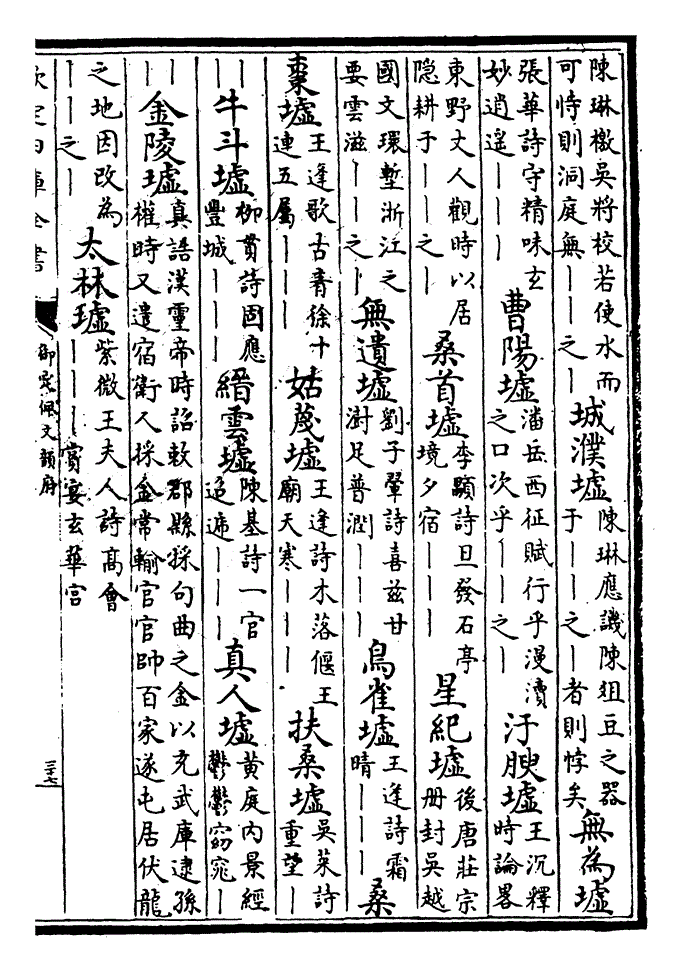 陳琳檄吳將校若使水而
可恃則洞庭無｜｜之｜
城濮墟
陳琳應譏陳俎豆之器
于｜｜之｜者則悖矣
無為墟
張華詩守精味玄
妙逍遙｜｜｜
曹陽墟
潘岳西征賦行乎漫瀆
之口次乎｜｜之｜
汙腴墟
王沉釋
時論畧
東野丈人觀時以居
隐耕于｜｜之｜
桑首墟
李顒詩旦發石亭
境夕宿｜｜｜
星紀墟
後唐莊宗
册封吳越
國文環塹浙江之
要雲滋｜｜之｜
無遺墟
劉子翬詩喜兹甘
澍足普潤｜｜｜
鳥雀墟
王逢詩霜
晴｜｜｜
桑
棗墟
王逢歌古音徐十
連五屬｜｜｜｜
姑蔑墟
王逢詩木落偃王
廟天寒｜｜｜
扶桑墟
吳萊詩
重望｜
｜｜
牛斗墟
柳貫詩固應
豐城｜｜｜
縉雲墟
陳基詩一官
迢遞｜｜｜
真人墟
黄庭内景經
鬱鬱窈窕｜
｜｜
金陵墟
真誥漢靈帝時詔敕郡縣採句曲之金以充武庫逮孫
權時又遣宿衛人採金常輸官官帥百家遂屯居伏龍
之地因改為
｜｜之｜
太林墟
紫微王夫人詩高會
｜｜｜賞宴玄華宫
欽定四庫全書
御定佩文韻府
三十七